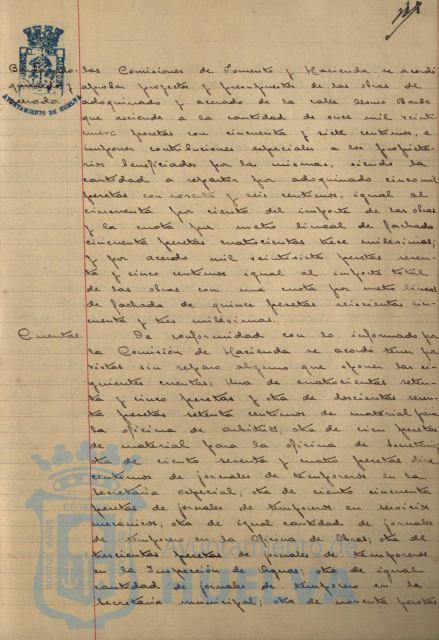 las Comisiones de Fomento y Hacienda se acordó
aprobar proyectos y presupuestos de las obras de
adoquinado y acerado de la calle
que asciende a la cantidad de once mil veinti
nueve pesetas con cincuenta y siete centimos, e
imponer contribuciones especiales a los propieta-
rios beneficiados por las mismas, siendo la
cantidad a repartir por adoquinado cinco mil
pesetas con noventa y seis centimos, igual al
cincuenta por ciento del importe de las obras
y la cuota por metro lineal de fachada
cincuenta pesetas cuatrocientas trece milesimas;
y por acerado mil veintisiete pesetas
y cinco centimos igual al importe total
de las obras con una cuota por metro lineal
de fachada de quince pesetas seiscientas cin-
cuenta y tres milésimas.
Cuentas. De conformidad con lo informado por
la Comisión de Hacienda se acordó tener por
vistas sin reparo alguno que oponer las si-
guientes cuentas: Una de cuatrocientas
y cinco pesetas y otra de doscientas
pesetas setenta centimos de material para
la oficina de arbitrios; otra de cien pesetas
de material para la oficina de
otra de ciento sesenta y cuatro pesetas doce
centimos de jornales de temporeros en la
Secretaría especial; otra de ciento cincuenta
pesetas de jornales de temporeros en servicios
mecánicos; otra de igual cantidad de jornales
de temporero en la Oficina de Obras; otra de
trescientas pesetas de jornales de temporeros
en la Inspección de Aguas; otra de igual
cantidad de jornales de temporero en la
Secretaría municipal; otra de noventa pesetas
AYUNTAMIENTO DE HUELVA
Ayuntamiento de
HUELVA